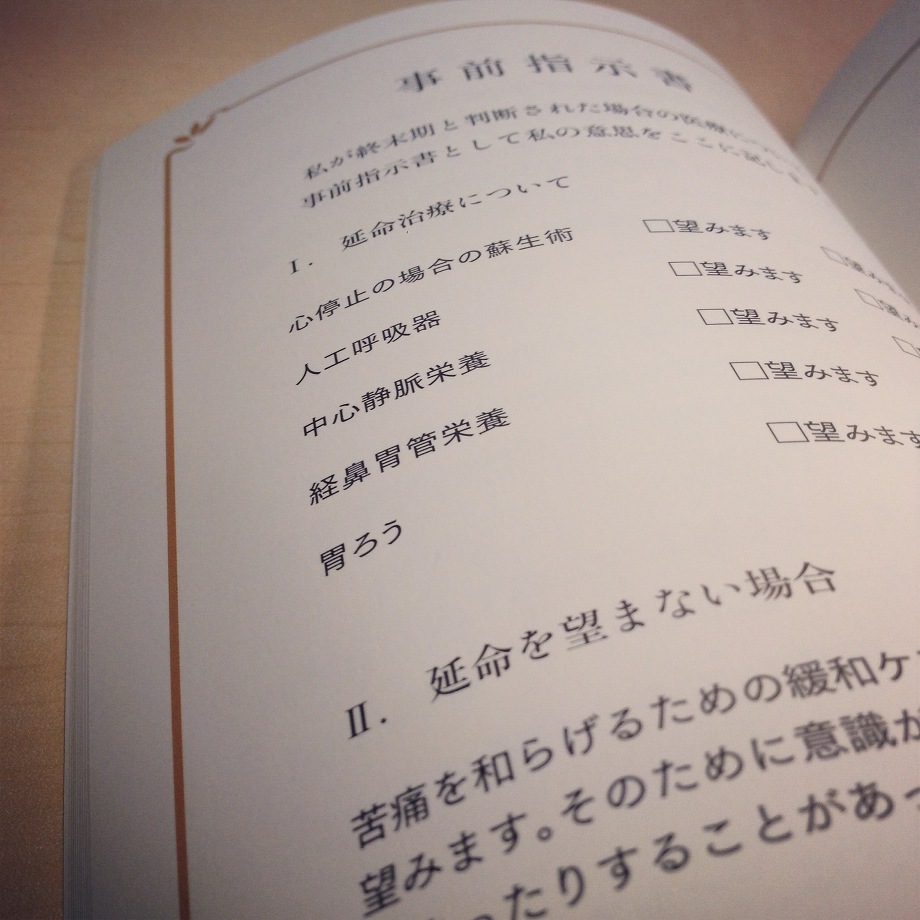 事前指示書
私が終末期と判断された場合の医療に
事前指示書として私の意思をここに記し
I. 延命治療について
心停止の場合の蘇生術 □望みます □望み
人工呼吸器 □望みます □望み
中心静脈栄養 □望みます
経鼻胃管栄養 □望みます
胃ろう □望みます
II. 延命を望まない場合
苦痛を和らげるための緩和ケ
望みます。そのために意識が
ったりすることがあっ